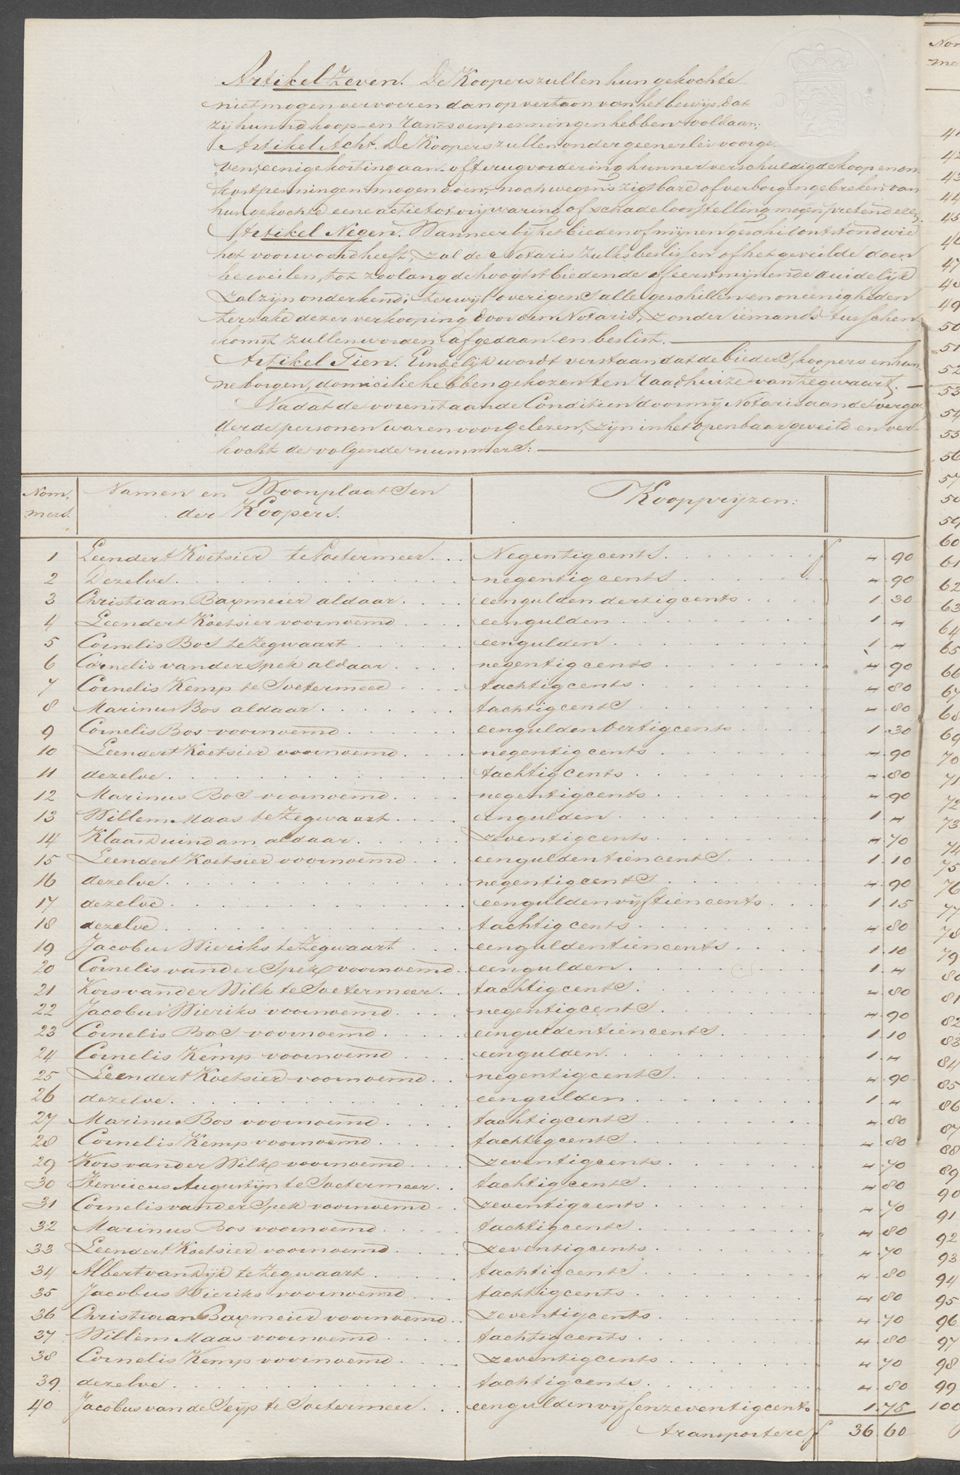 Artikel Zeven. De Koopers zullen hun gekochte
niet mogen vervoeren dan op vertoon van het bewijs, dat
zij hunne koop- en rantsoenpenningen hebben voldaan.
Artikel Acht. De Koopers zullen onder geenerlei voorge-
ven, eenige korting aan- of terugvordering hunner verschuldigde koop en on
kostpenningen mogen doen, noch wegens zigtbare of verborgen gebreken van
hun gekochte eene actie tot vrijwaring of schadeloosstelling mogen pretenderen.
Artikel Negen. Wanneer bij het bieden of mijnen geschil ontstond wie
het voorwoord heeft, zal de Notaris zulks beslissen of het geveilde doen
herveilen, tot zoolang de hoogstbiedende of eerstmijnende duidelijk
zal zijn onderkend; terwijl overigens alle geschillen en oneenigheden
terzake dezer verkooping door dien Notaris, zonder iemands tusschen
komst zullen worden afgedaan en beslist.
Artikel Tien. Eindelijk wordt verstaan dat de bieders, koopers en hun
ne borgen, domicilie hebben gekozen ten raadhuize van Zegwaart.
Nadat de vorenstaande Conditien door mij Notaris aan de verga
derde personen waren voorgelezen, zijn in het openbaar geveild en ver
kocht de volgende nummers:
Nom Namen en Woonplaatsen Koopprijzen:
mers. der Koopers.
1 Leendert Koetsier te Soetermeer Negentig cents ƒ " 90
2 Dezelve negentig cents " 90
3 Christiaan Baxmeier aldaar een gulden dertig cents 1 30
4 Leendert Koetsier voornoemd een gulden 1 "
5 Cornelis Bos te Zegwaart een gulden 1 "
6 Cornelis van der Spek aldaar negentig cents " 90
7 Cornelis Kemp te Soetermeer tachtig cents " 80
8 Marinus Bos aldaar tachtig cents " 80
9 Cornelis Bos voornoemd een gulden dertig cents 1 30
10 Leendert Koetsier voornoemd negentig cents " 90
11 dezelve tachtig cents " 80
12 Marinus Bos voornoemd negentig cents " 90
13 Willem Maas te Zegwaart een gulden 1 "
14 Klaas Duindam aldaar zeventig cents " 70
15 Leendert Koetsier voornoemd een gulden tien cents 1 10
16 dezelve negentig cents " 90
17 dezelve een gulden vijftien cents 1 15
18 dezelve tachtig cents " 80
19 Jacobus Wieriks te Zegwaart een gulden tien cents 1 10
20 Cornelis van der Spek voornoemd een gulden 1 "
21 Kors van der Wilk te Soetermeer tachtig cents " 80
22 Jacobus Wieriks voornoemd negentig cents " 90
23 Cornelis Bos voornoemd een gulden tien cents 1 10
24 Cornelis Kemp voornoemd een gulden 1 "
25 Leendert Koetsier voornoemd negentig cents " 90
26 dezelve een gulden 1 "
27 Marinus Bos voornoemd tachtig cents " 80
28 Cornelis Kemp voornoemd tachtig cents " 80
29 Kors van der Wilk voornoemd zeventig cents " 70
30 Augustijn te Soetermeer tachtig cents " 80
31 Cornelis van der Spek voornoemd zeventig cents " 70
32 Marinus Bos voornoemd tachtig cents " 80
33 Leendert Koetsier voornoemd zeventig cents " 70
34 Albert van Dijk te Zegwaart tachtig cents " 80
35 Jacobus Wieriks voornoemd tachtig cents " 80
36 Christiaan Baxmeier voornoemd zeventig cents " 70
37 Willem Maas voornoemd tachtig cents " 80
38 Cornelis Kemp voornoemd zeventig cents " 70
39 dezelve tachtig cents " 80
40 Jacobus van de Seijp te Soetermeer een gulden vijf en zeventig cents 1 75
transportere ƒ 36 60